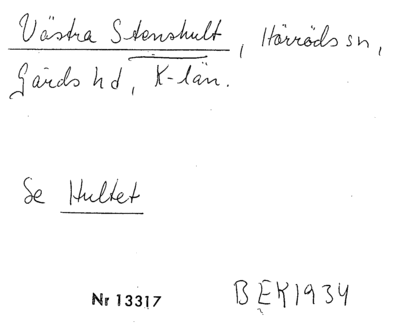 Västra Stenshult, Hörröds sn,
Gärds hd, K-län.
Se Hultet
Nr 13317 BEK1934